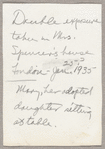 Double exposure
taken in Mrs.
Spencer's house
London - Jan. 25th 1935
Mary, her adopted
daughter sitting
at table.